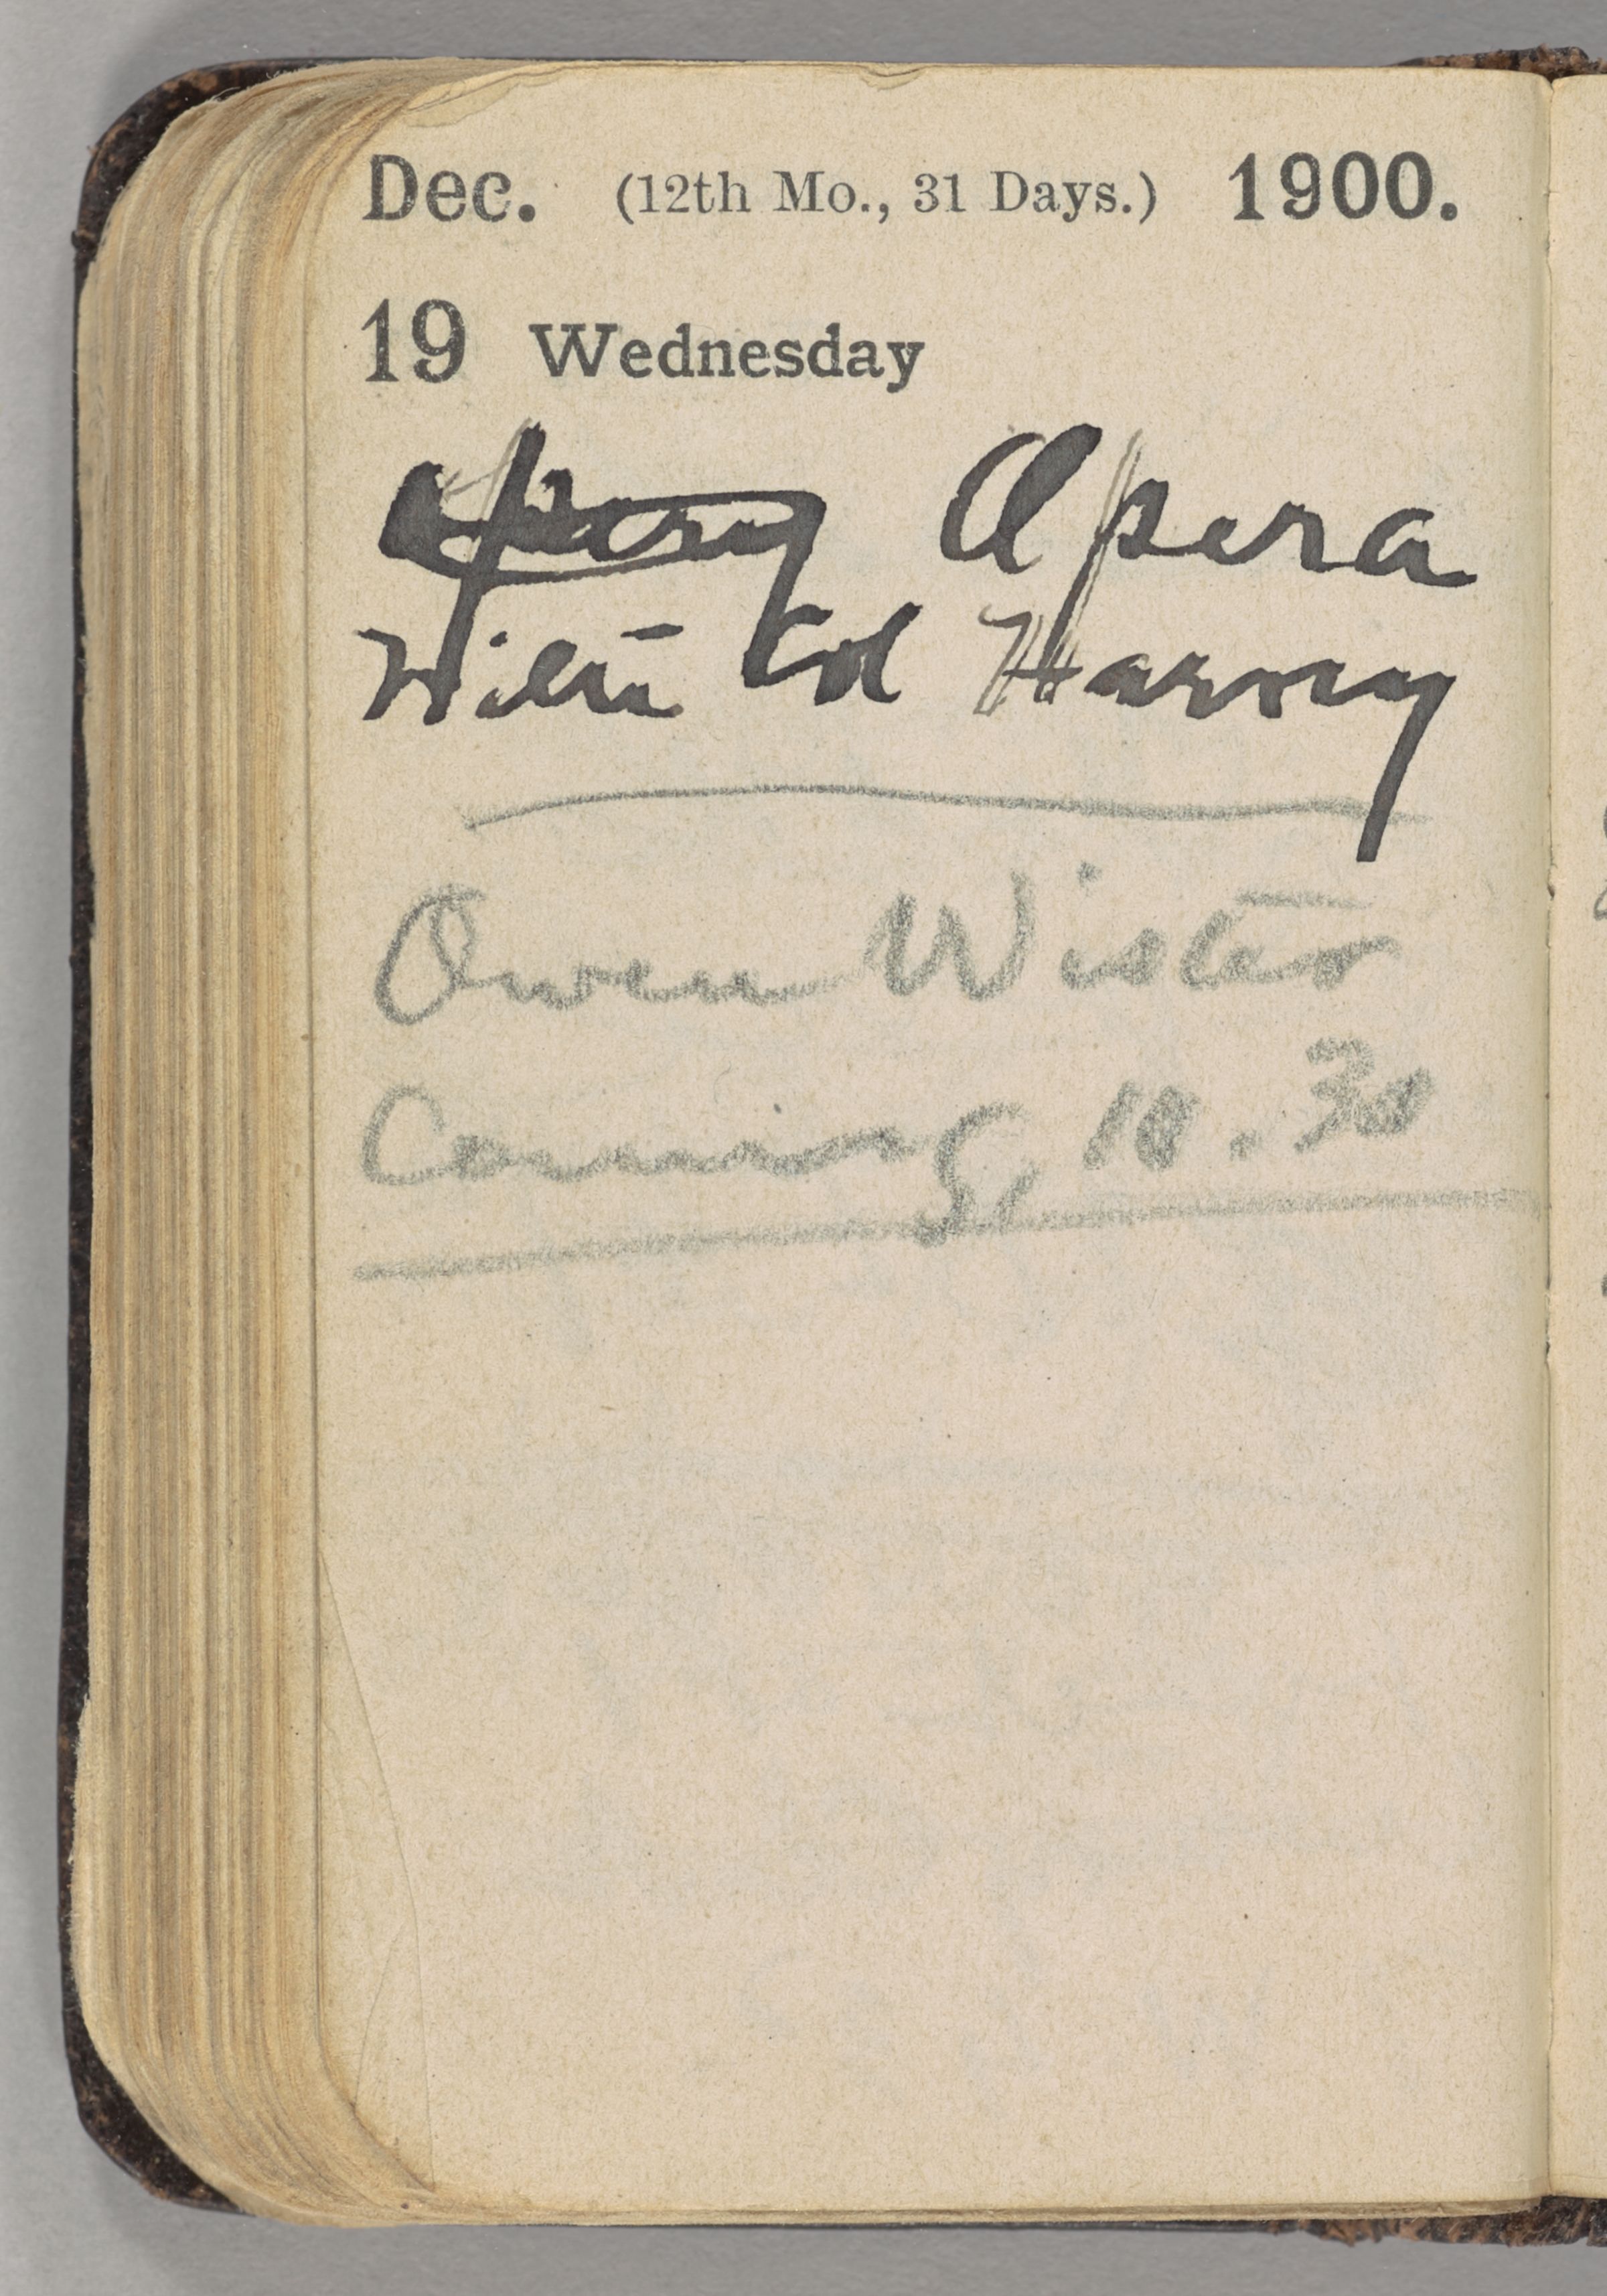 Dec. (12th Mo., 31 Days.) 1900.
19 Wednesday
Opera
With Col Harvey
Owen Wister
Coming, 10.30